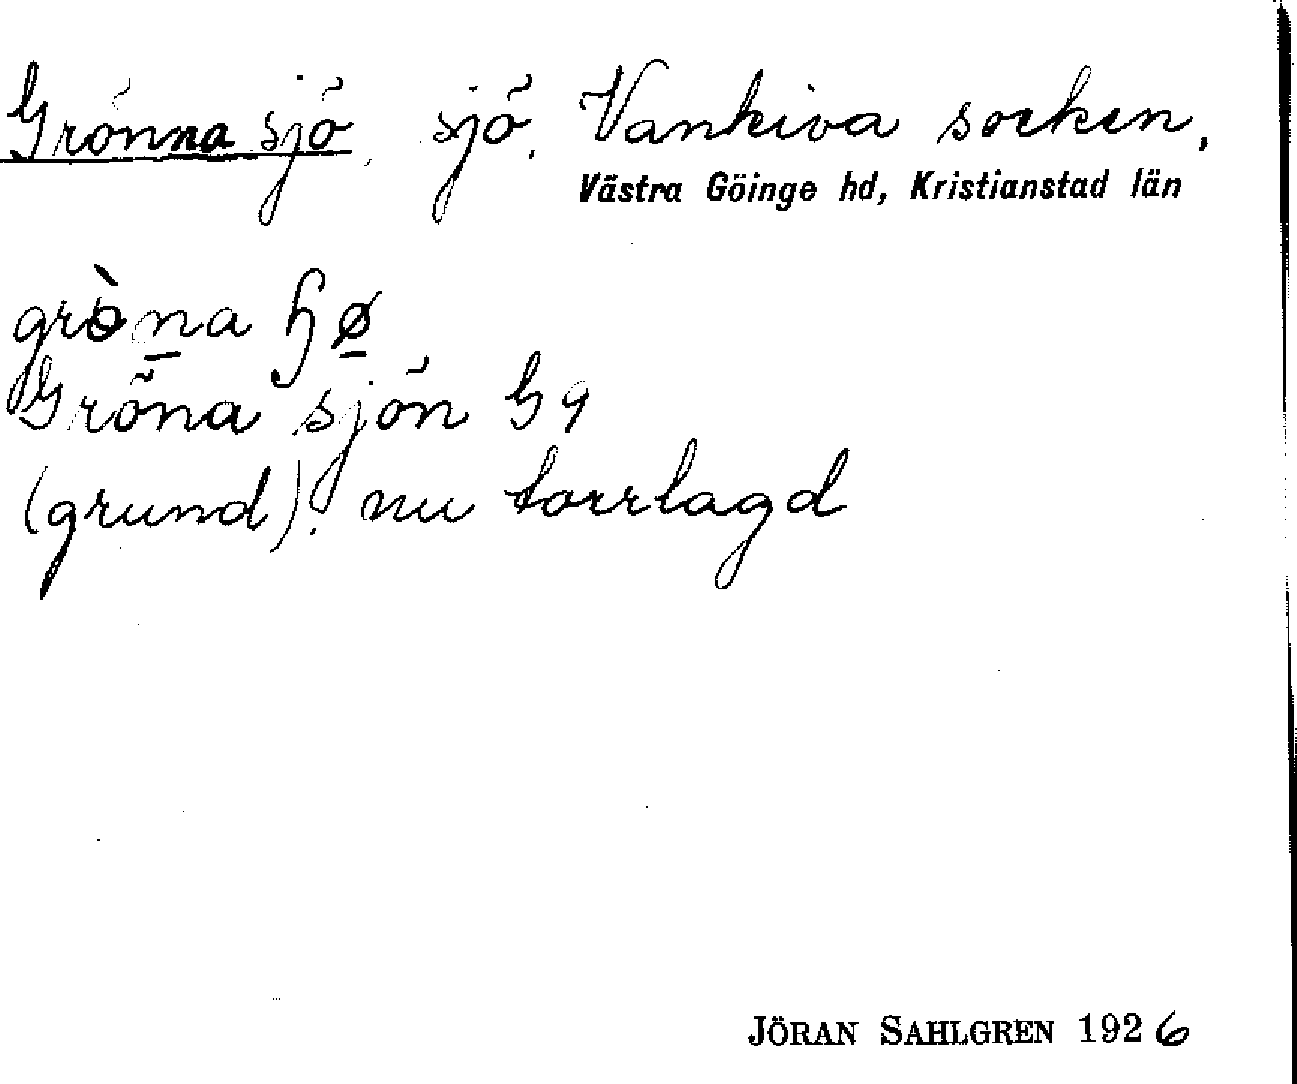 Grönna sjö, sjö, Vankiva socken,
Västra Göinge hd, Kristianstad län
grò̱na ɧø̱
Gröna sjön G9
(grund). nu torrlagd
JÖRAN SAHLGREN 1926